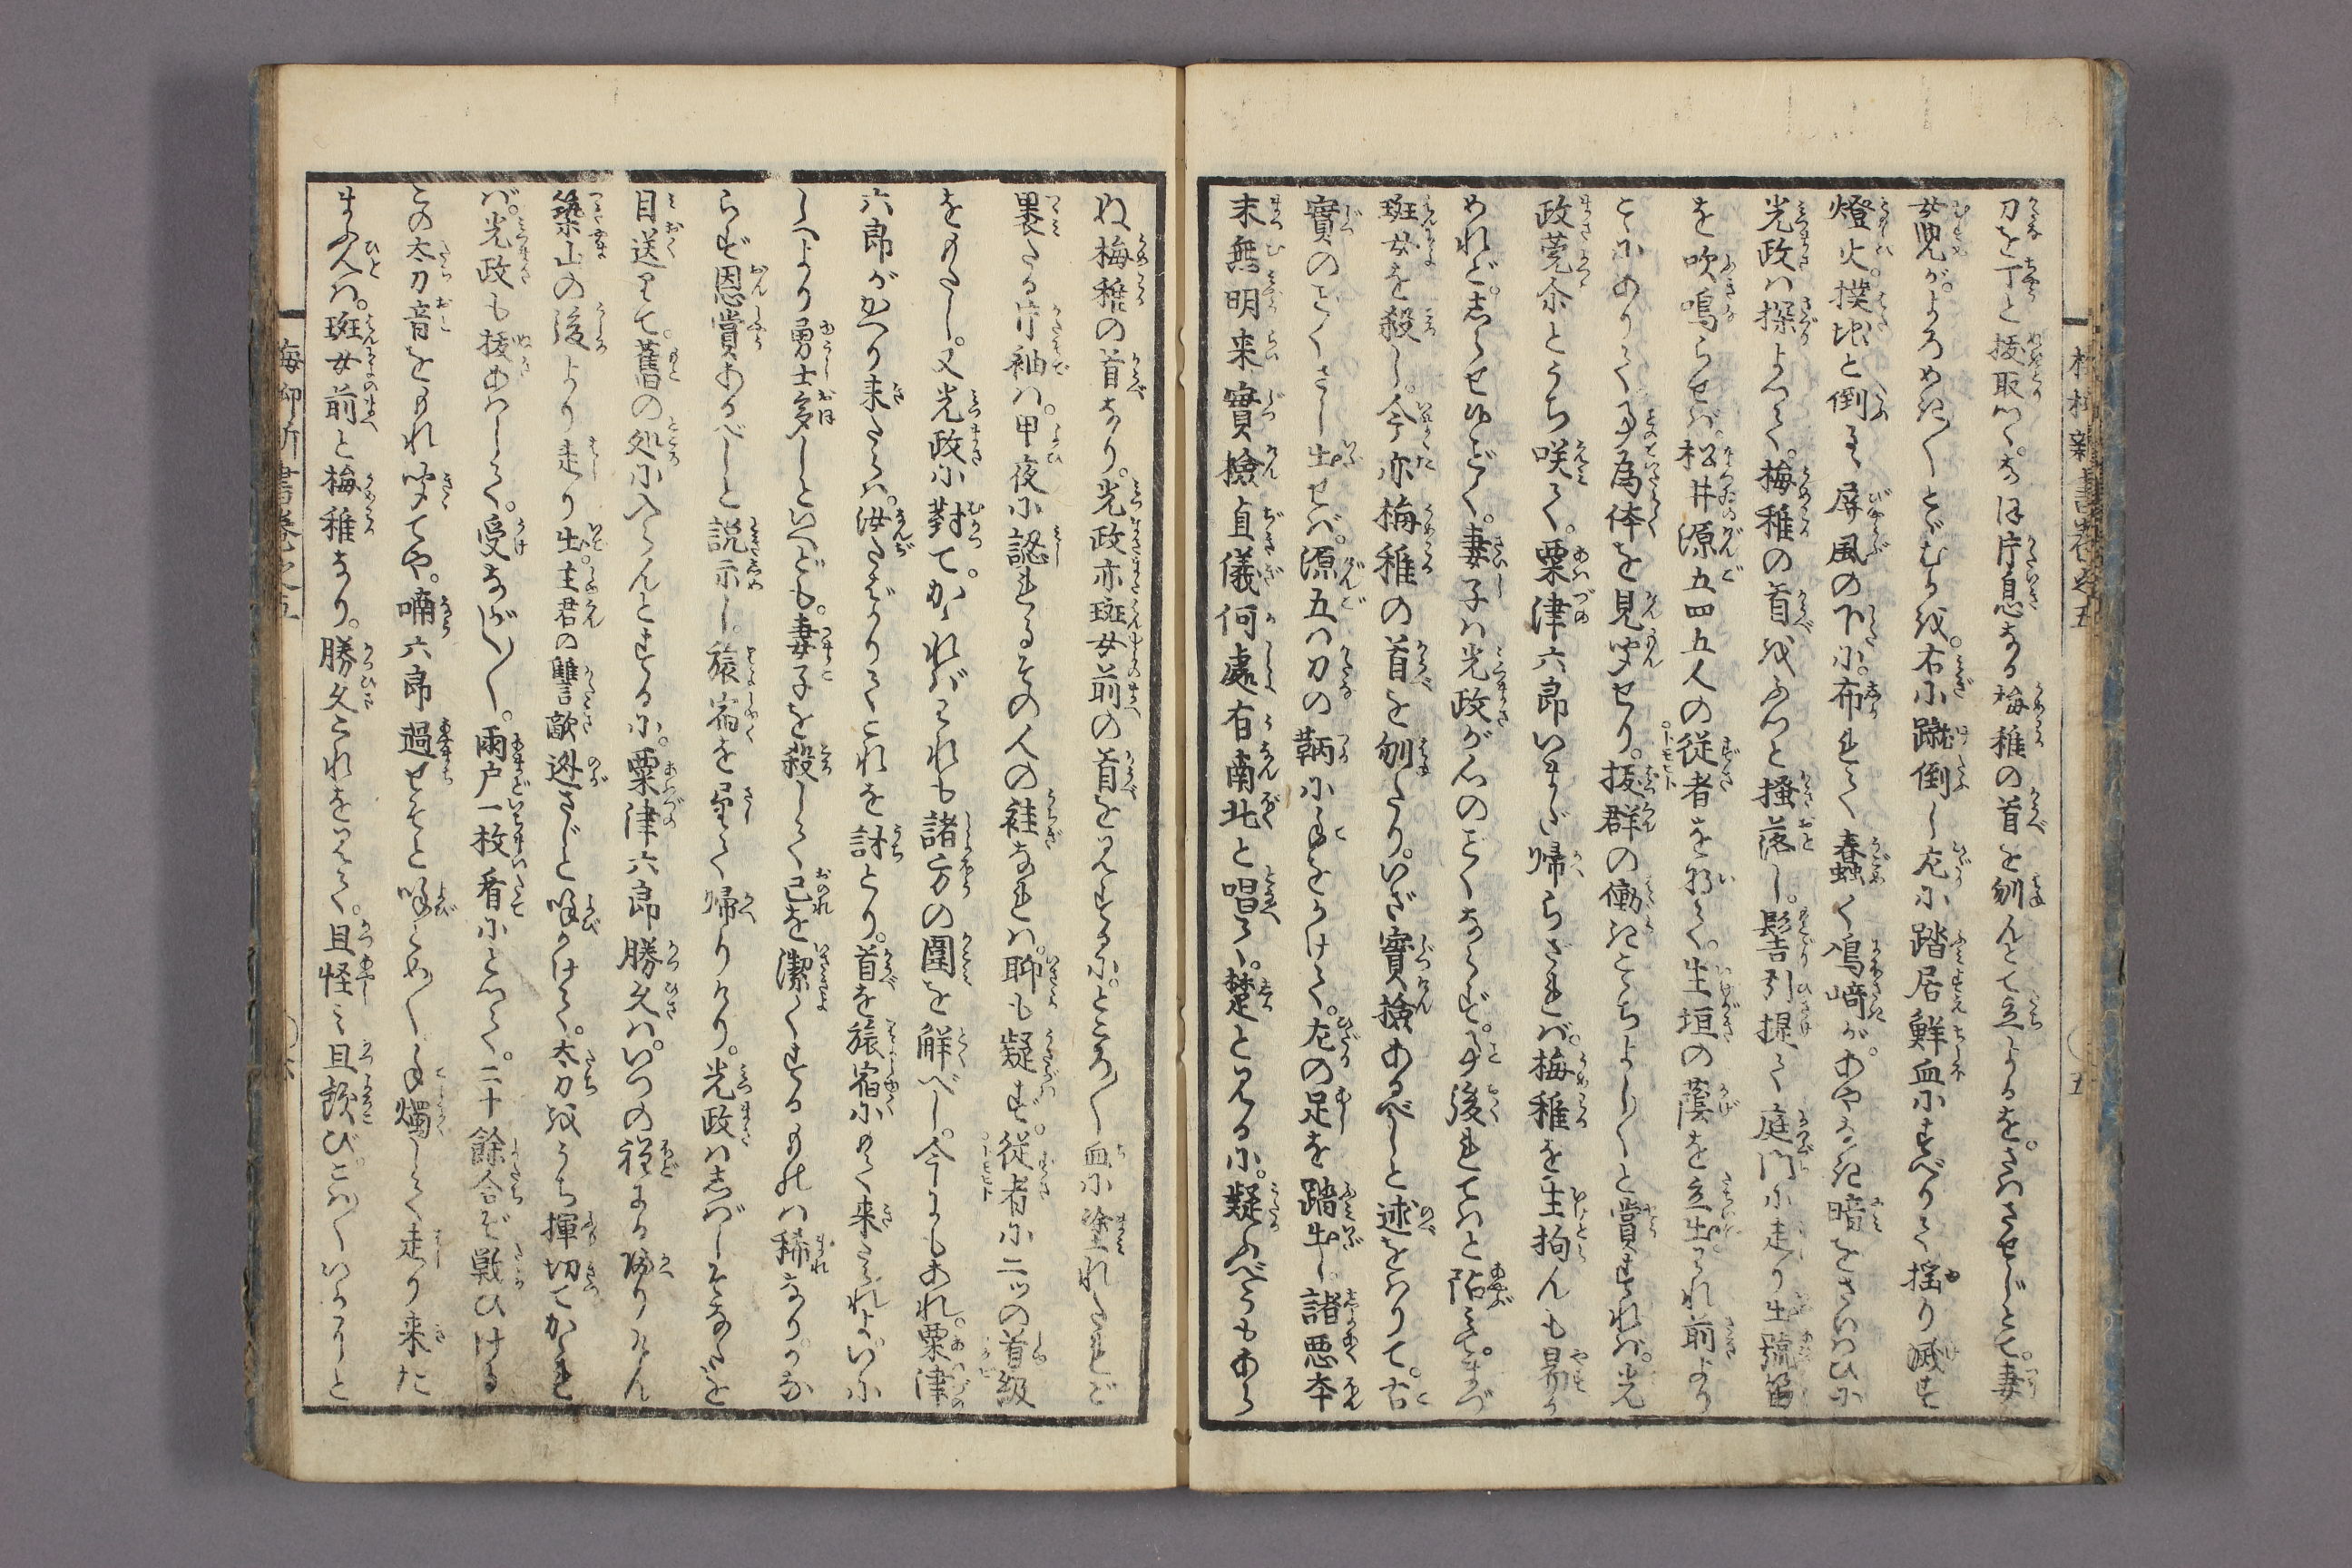 刀を丁と抜取つゝ。なほ片息なる梅稚の首を刎んとて立よるを。さはさせじとて。妻
女児が。よろめき〳〵とゞむるを。右に蹴倒し左に踏居鮮血にすべりて揺り滅す
燈火。撲地と倒るゝ屏風の下に。布れて蠢く嶋崎が。あやなき暗をさいはひに
光政は探りよつて。梅稚の首をふつと掻落し。髻引提て庭門に走り出号笛
を吹鳴らせば。松井源五四五人の従者を将て。生垣の蔭を立出つれ前より
こゝにありて事の為体を見聞せり。抜群の働きこゝちよし〳〵と賞すれば。光
政莞尓とうち咲て。粟津六郎いまだ帰らざれば。梅稚を生拘んも易か
めれど。志らせ給ふごとく。妻子は光政が心のごとくならず。事後れてはと阽みて。まづ
斑女を殺し。今亦梅稚の首を刎たり。いざ實撿あるべしと述をはりて。古
實のごとくさし出せば。源五は刀の鞆に手をかけて。左の足を踏出し諸悪本
末無明来實撿貞儀何處有南北と唱へつゝ。楚と見るに。疑ふべうもあら
ぬ梅稚の首なり。光政亦斑女前の首を見するに。ところ〴〵血に塗れたれど
裹たる片袖は。甲夜に認れるその人の袿なれば。聊も疑はず。従者に二ッの首級
をもたし。又光政に對て。かゝればこれも諸方の圍を解べし。今にもあれ。粟津
六郎がかへり来たらば。汝たばかりてこれを討とり。首を旅宿にもて来られよ。いに
しへより勇士多しといへども。妻子を殺して己を潔くするものは稀なり。かな
らず恩賞あるべしと説示し。旅宿を望て帰りけり。光政は志ばしそなたを
目送りて。舊の処に入らんとする に。粟津六郎勝久は。いつの程にか帰りけん
築山の後より走り出。主君の讐敵迯さじと呼びかけて。太刀をうち揮切てかゝれ
ば。光政も抜あはして。受ながし〳〵。雨戸一枚看にとつて。二十餘合ぞ戦ひける
この太刀音をもれ聞てや。喃六郎過せそと呼とめ〳〵手燭して走り来た
ま ふ人は。斑女前と梅稚なり。勝久これを見て。且怪み且歓び。こは〳〵いかにと
梅柳新書巻之五
五